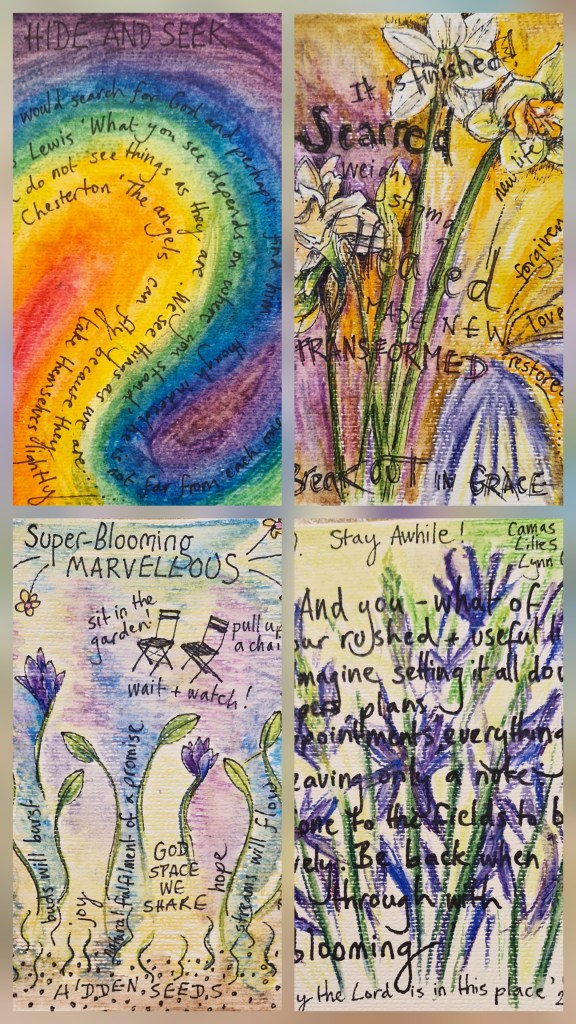 HIDE AND SEEK
would search for God and perhaps find him
though indeed he is not far from each one
Lewis 'What you see depends on where you stand'
do not see things as they are. We see things as we are
Chesterton 'The angels can fly because they
take themselves lightly
It is finished!
Scarred
Weight
stoma
Healed
new life
forgiven
MADE NEW
love
TRANSFORMED
restored
Break OUT IN GRACE
Super-Blooming
MARVELLOUS
sit in the
garden!
pull up
a chair
wait + watch!
buds will burst
joy
natural fulfilment of a promise
GOD
SPACE
WE
SHARE
hope
streams will flow
HIDDEN SEEDS
Stay Awhile!
Camas
Lilies
Lynn
And you - what of
our rushed + useful li
magine setting it all dow
pers plans,
ppointments everything
eaving only a note
one to the fields to b
vely. Be back when
through with
blooming
y the Lord is in this place'